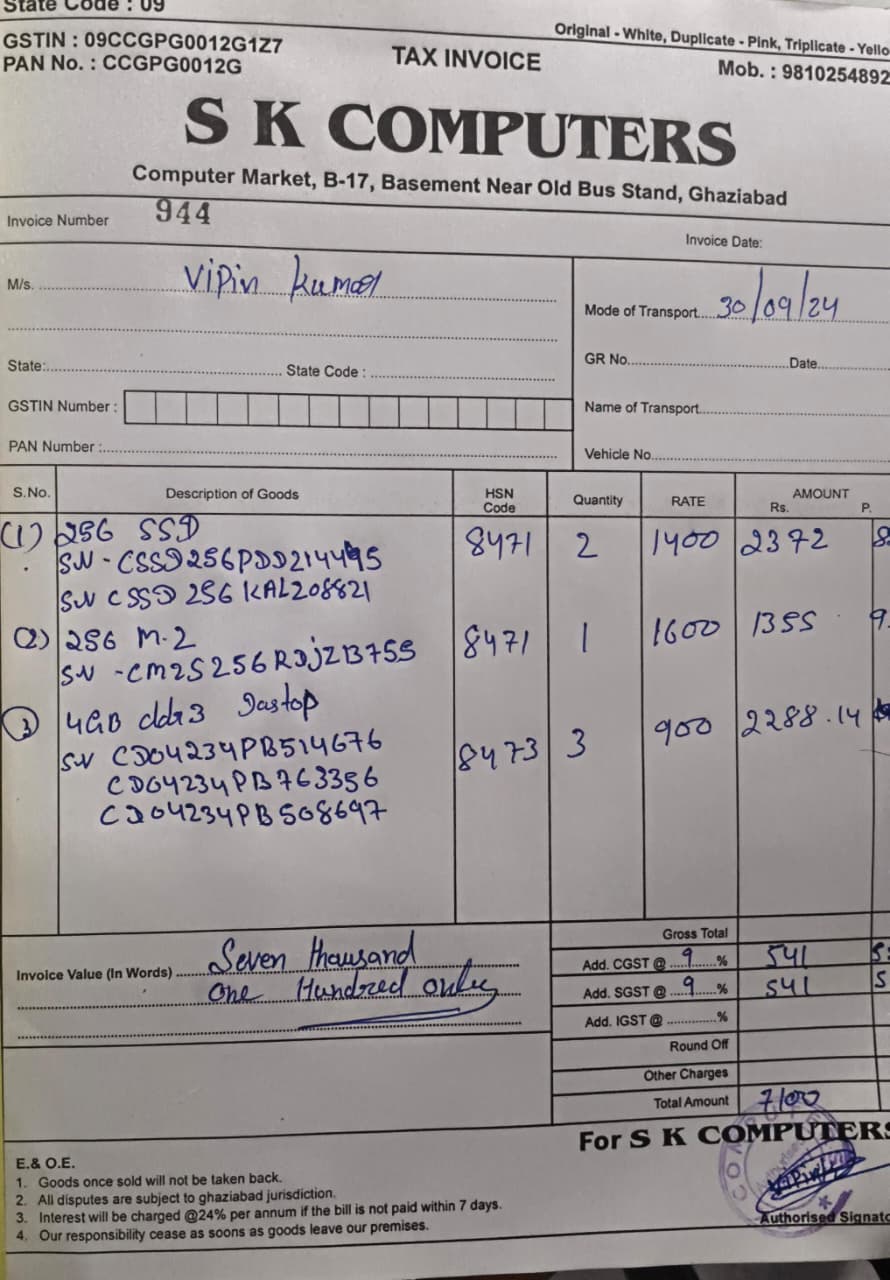 State Code : 09
Original - White, Duplicate - Pink, Triplicate - Yello
GSTIN : 09CCGPG0012G1Z7
TAX INVOICE
PAN No. : CCGPG0012G
Mob. : 9810254892
S K COMPUTERS
Computer Market, B-17, Basement Near Old Bus Stand, Ghaziabad
Invoice Number 944
Invoice Date:
M/s. Vipin Kumar
Mode of Transport 30/09/24
State: State Code :
GR No. Date
GSTIN Number :
Name of Transport
PAN Number :
Vehicle No.
S.No. Description of Goods HSN Code Quantity RATE AMOUNT Rs. P.
(1) 256 SSD 8471 2 1400 2372 8
SN - CSSD256PDD214495
SN CSSD 256 KAL208821
(2) 256 M.2 8471 1 1600 1355 9
SN - CM2S256RDjZB755
3 4GB ddr3 Dastop 8473 3 900 2288.14
SN CD04234PB514676
CD04234PB763356
CD04234PB508697
Gross Total
Invoice Value (In Words) Seven thausand
One Hundred only
Add. CGST @ 9 % 541 5
Add. SGST @ 9 % 541 5
Add. IGST @ %
Round Off
Other Charges
Total Amount 7100
For S K COMPUTERS
E.& O.E.
1. Goods once sold will not be taken back.
2. All disputes are subject to ghaziabad jurisdiction.
3. Interest will be charged @24% per annum if the bill is not paid within 7 days.
4. Our responsibility cease as soons as goods leave our premises.
Vipin
Authorised Signato